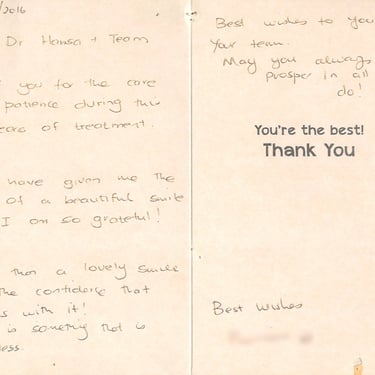 /2016
Dr Hansa + Team
you for the care
patience during this
ears of treatment.
have given me the
of a beautiful smile
I am so grateful!
than a lovely smile
the confidence that
s with it!
is something that is
less.
Best wishes to you
your team.
May you always
prosper in all
do!
You're the best!
Thank You
Best wishes